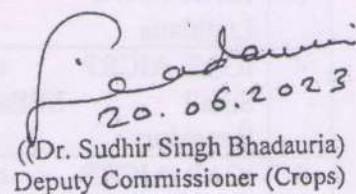 Bhadauria
20.06.2023
((Dr. Sudhir Singh Bhadauria)
Deputy Commissioner (Crops)